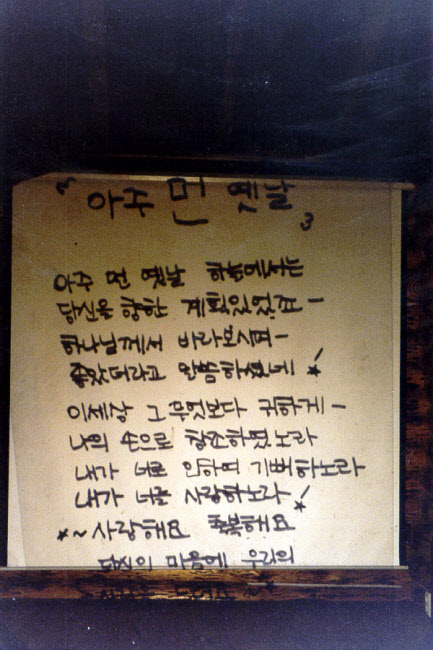 아주 먼 옛날
아주 먼 옛날 하늘에서는
당신을 향한 계획있었죠 -
하나님께서 바라보시며 -
좋았더라고 말씀하셨네 ★
이세상 그 무엇보다 귀하게 -
나의 손으로 창조하였노라
내가 너로 인하여 기뻐하노라
내가 너를 사랑하노라 ★
★~ 사랑해요 축복해요
당신의 마음에 우리의